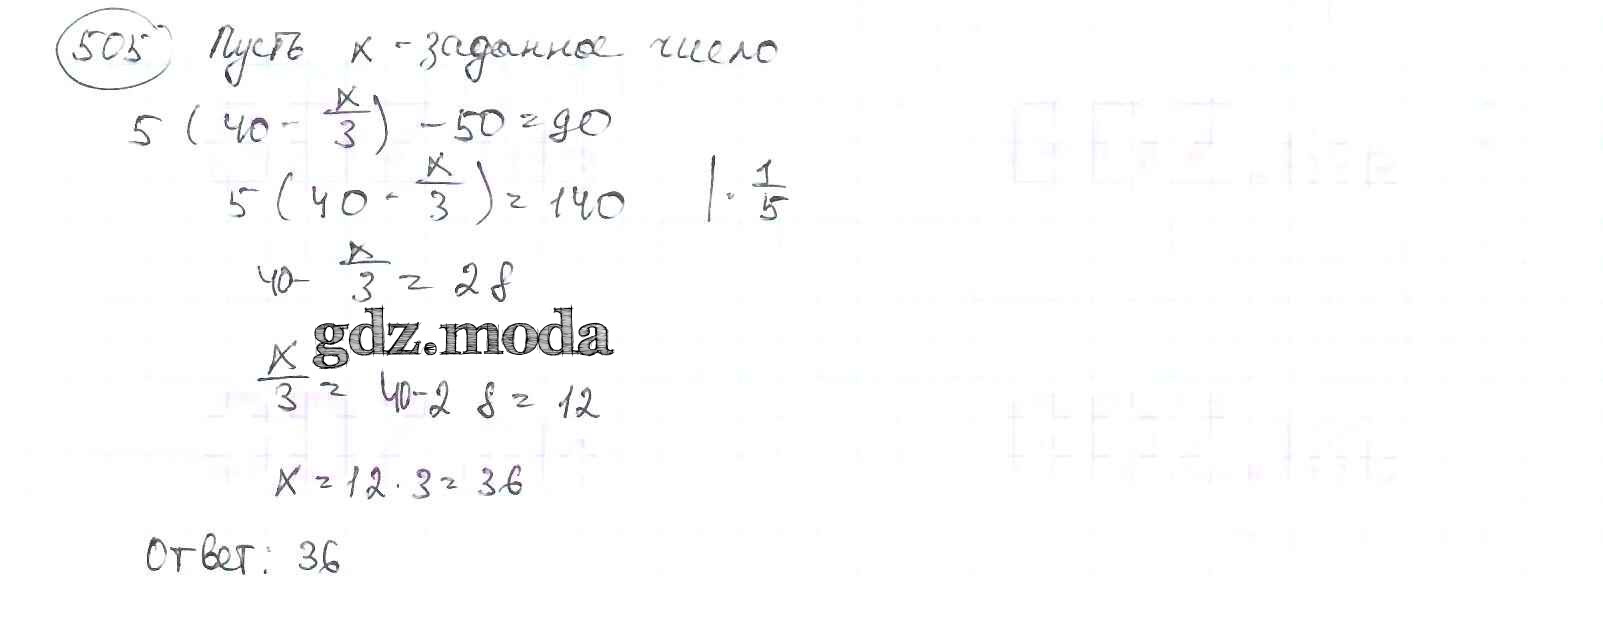 505 Пусть x - заданное число
5 (40 - x/3) - 50 = 90
5 (40 - x/3) = 140 | · 1/5
40 - x/3 = 28
gdz.moda
x/3 = 40 - 28 = 12
x = 12 · 3 = 36
Ответ: 36